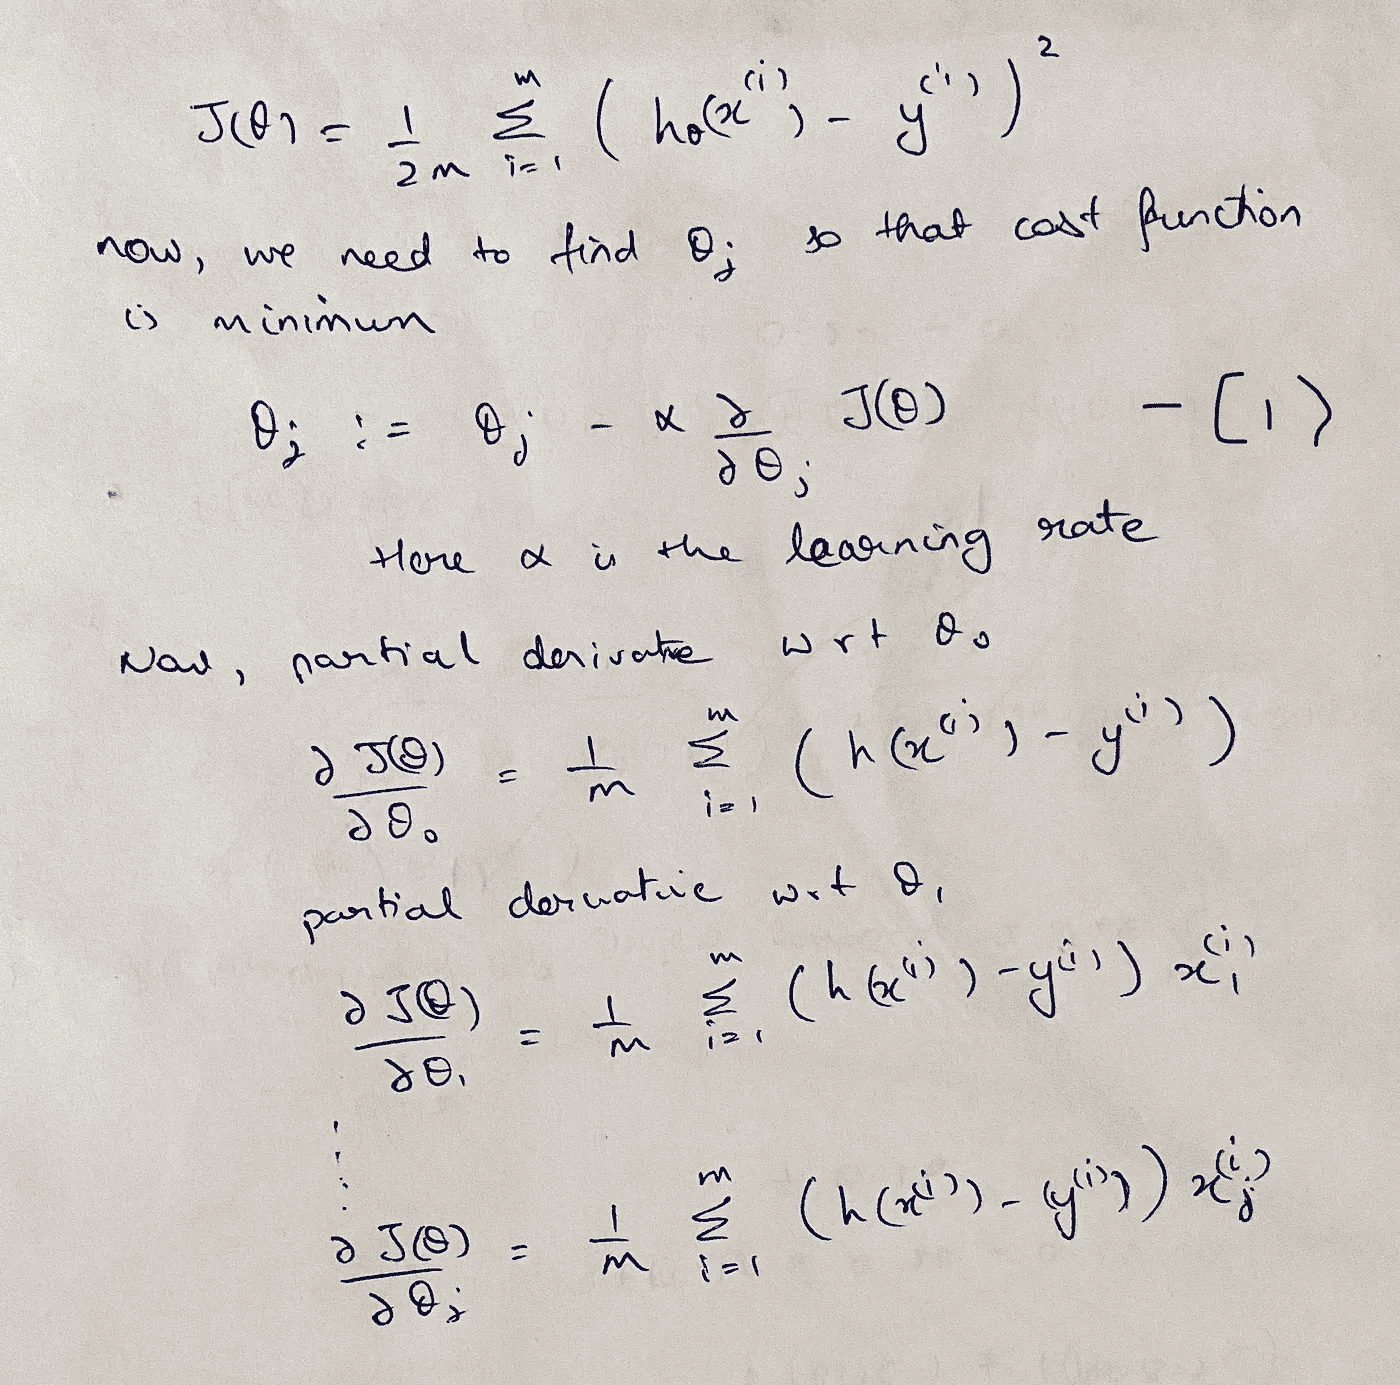 J(θ) = 1/2m Σ_{i=1}^{m} ( h_θ(x^{(i)}) - y^{(i)} )^2
now, we need to find θ_j so that cost function
is minimum
θ_j := θ_j - α ∂/∂θ_j J(θ) - (1)
Here α is the learning rate
Now, partial derivative w r t θ_0
∂J(θ)/∂θ_0 = 1/m Σ_{i=1}^{m} ( h(x^{(i)}) - y^{(i)} )
partial derivative w.r.t θ_1
∂J(θ)/∂θ_1 = 1/m Σ_{i=1}^{m} ( h(x^{(i)}) - y^{(i)} ) x_1^{(i)}
⋮
∂J(θ)/∂θ_j = 1/m Σ_{i=1}^{m} ( h(x^{(i)}) - (y^{(i)}) ) x_j^{(i)}